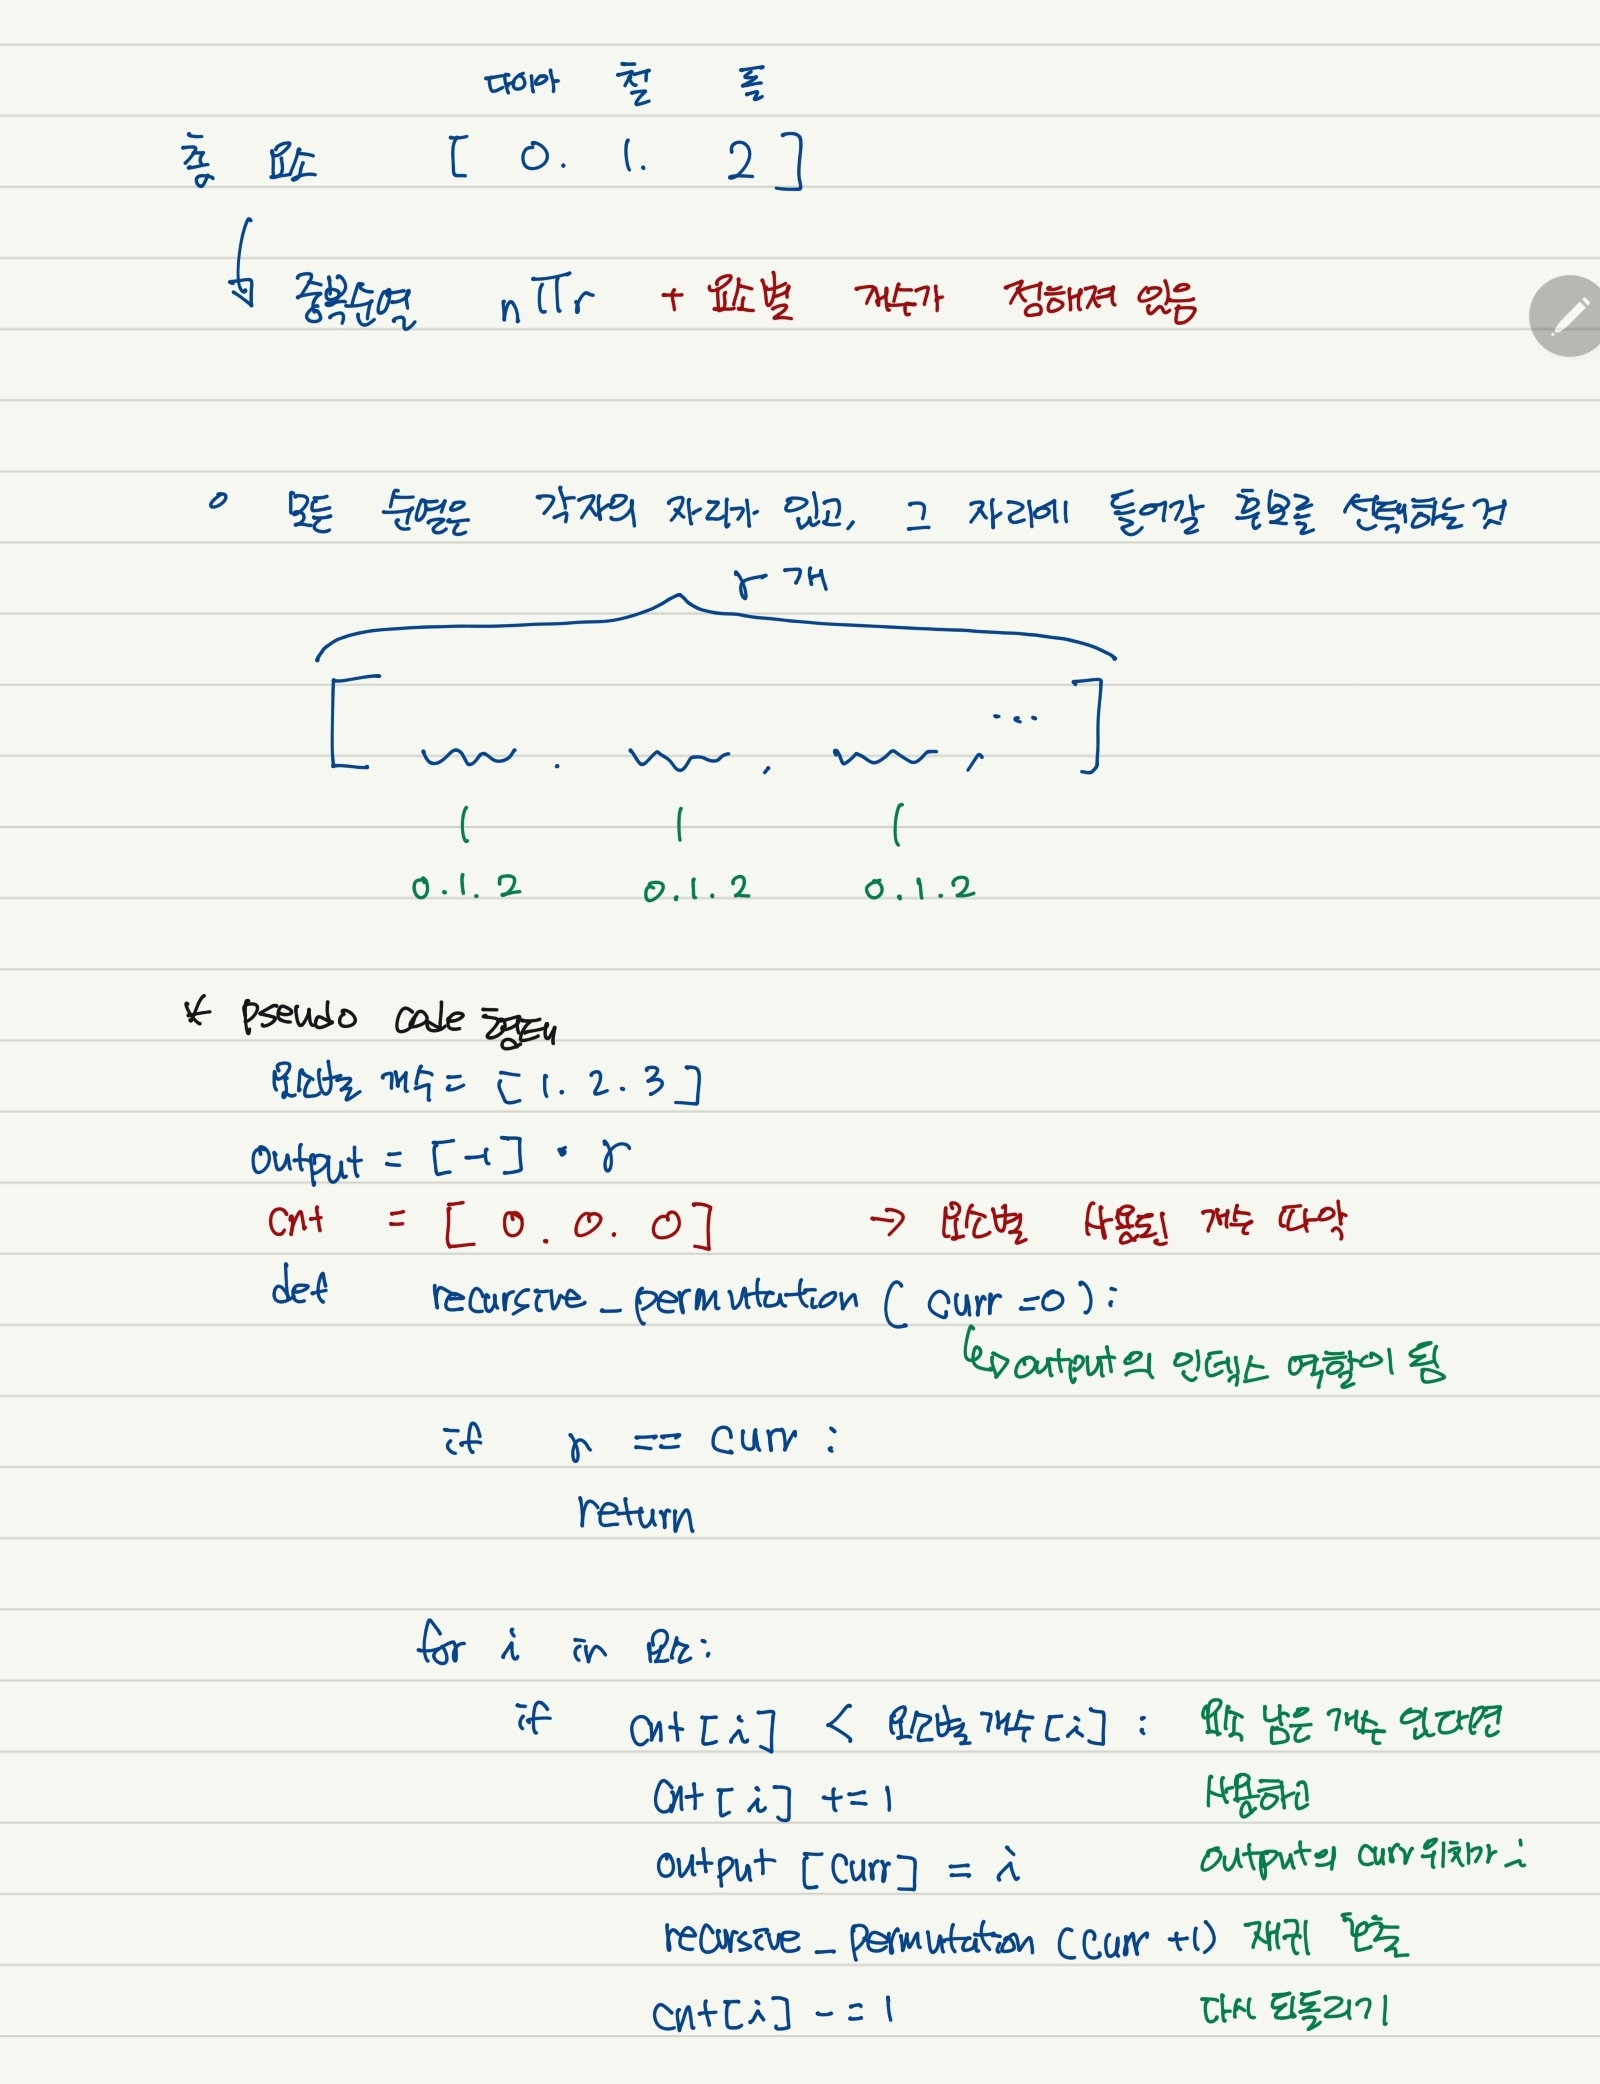 다이아 철 돌
총 요소 [ 0. 1. 2 ]
중복순열 nπr + 요소별 개수가 정해져 있음
o 모든 순열은 각자의 자리가 있고, 그 자리에 들어갈 후보를 선택하는 것
r개
[ . , , ... ]
0.1.2 0.1.2 0.1.2
* pseudo code 형태
요소별 개수 = [1. 2. 3]
output = [-1] · r
cnt = [ 0. 0. 0 ] → 요소별 사용된 개수 파악
def recursive_permutation ( curr =0 ):
output의 인덱스 역할이 됨
if r == curr :
return
for i in 요소:
if cnt [i] < 요소별 개수 [i] : 요소 남은 개수 있다면
cnt [i] += 1 사용하고
output [curr] = i output의 curr 위치가 i
recursive_permutation (curr +1) 재귀 호출
cnt[i] -= 1 다시 되돌리기